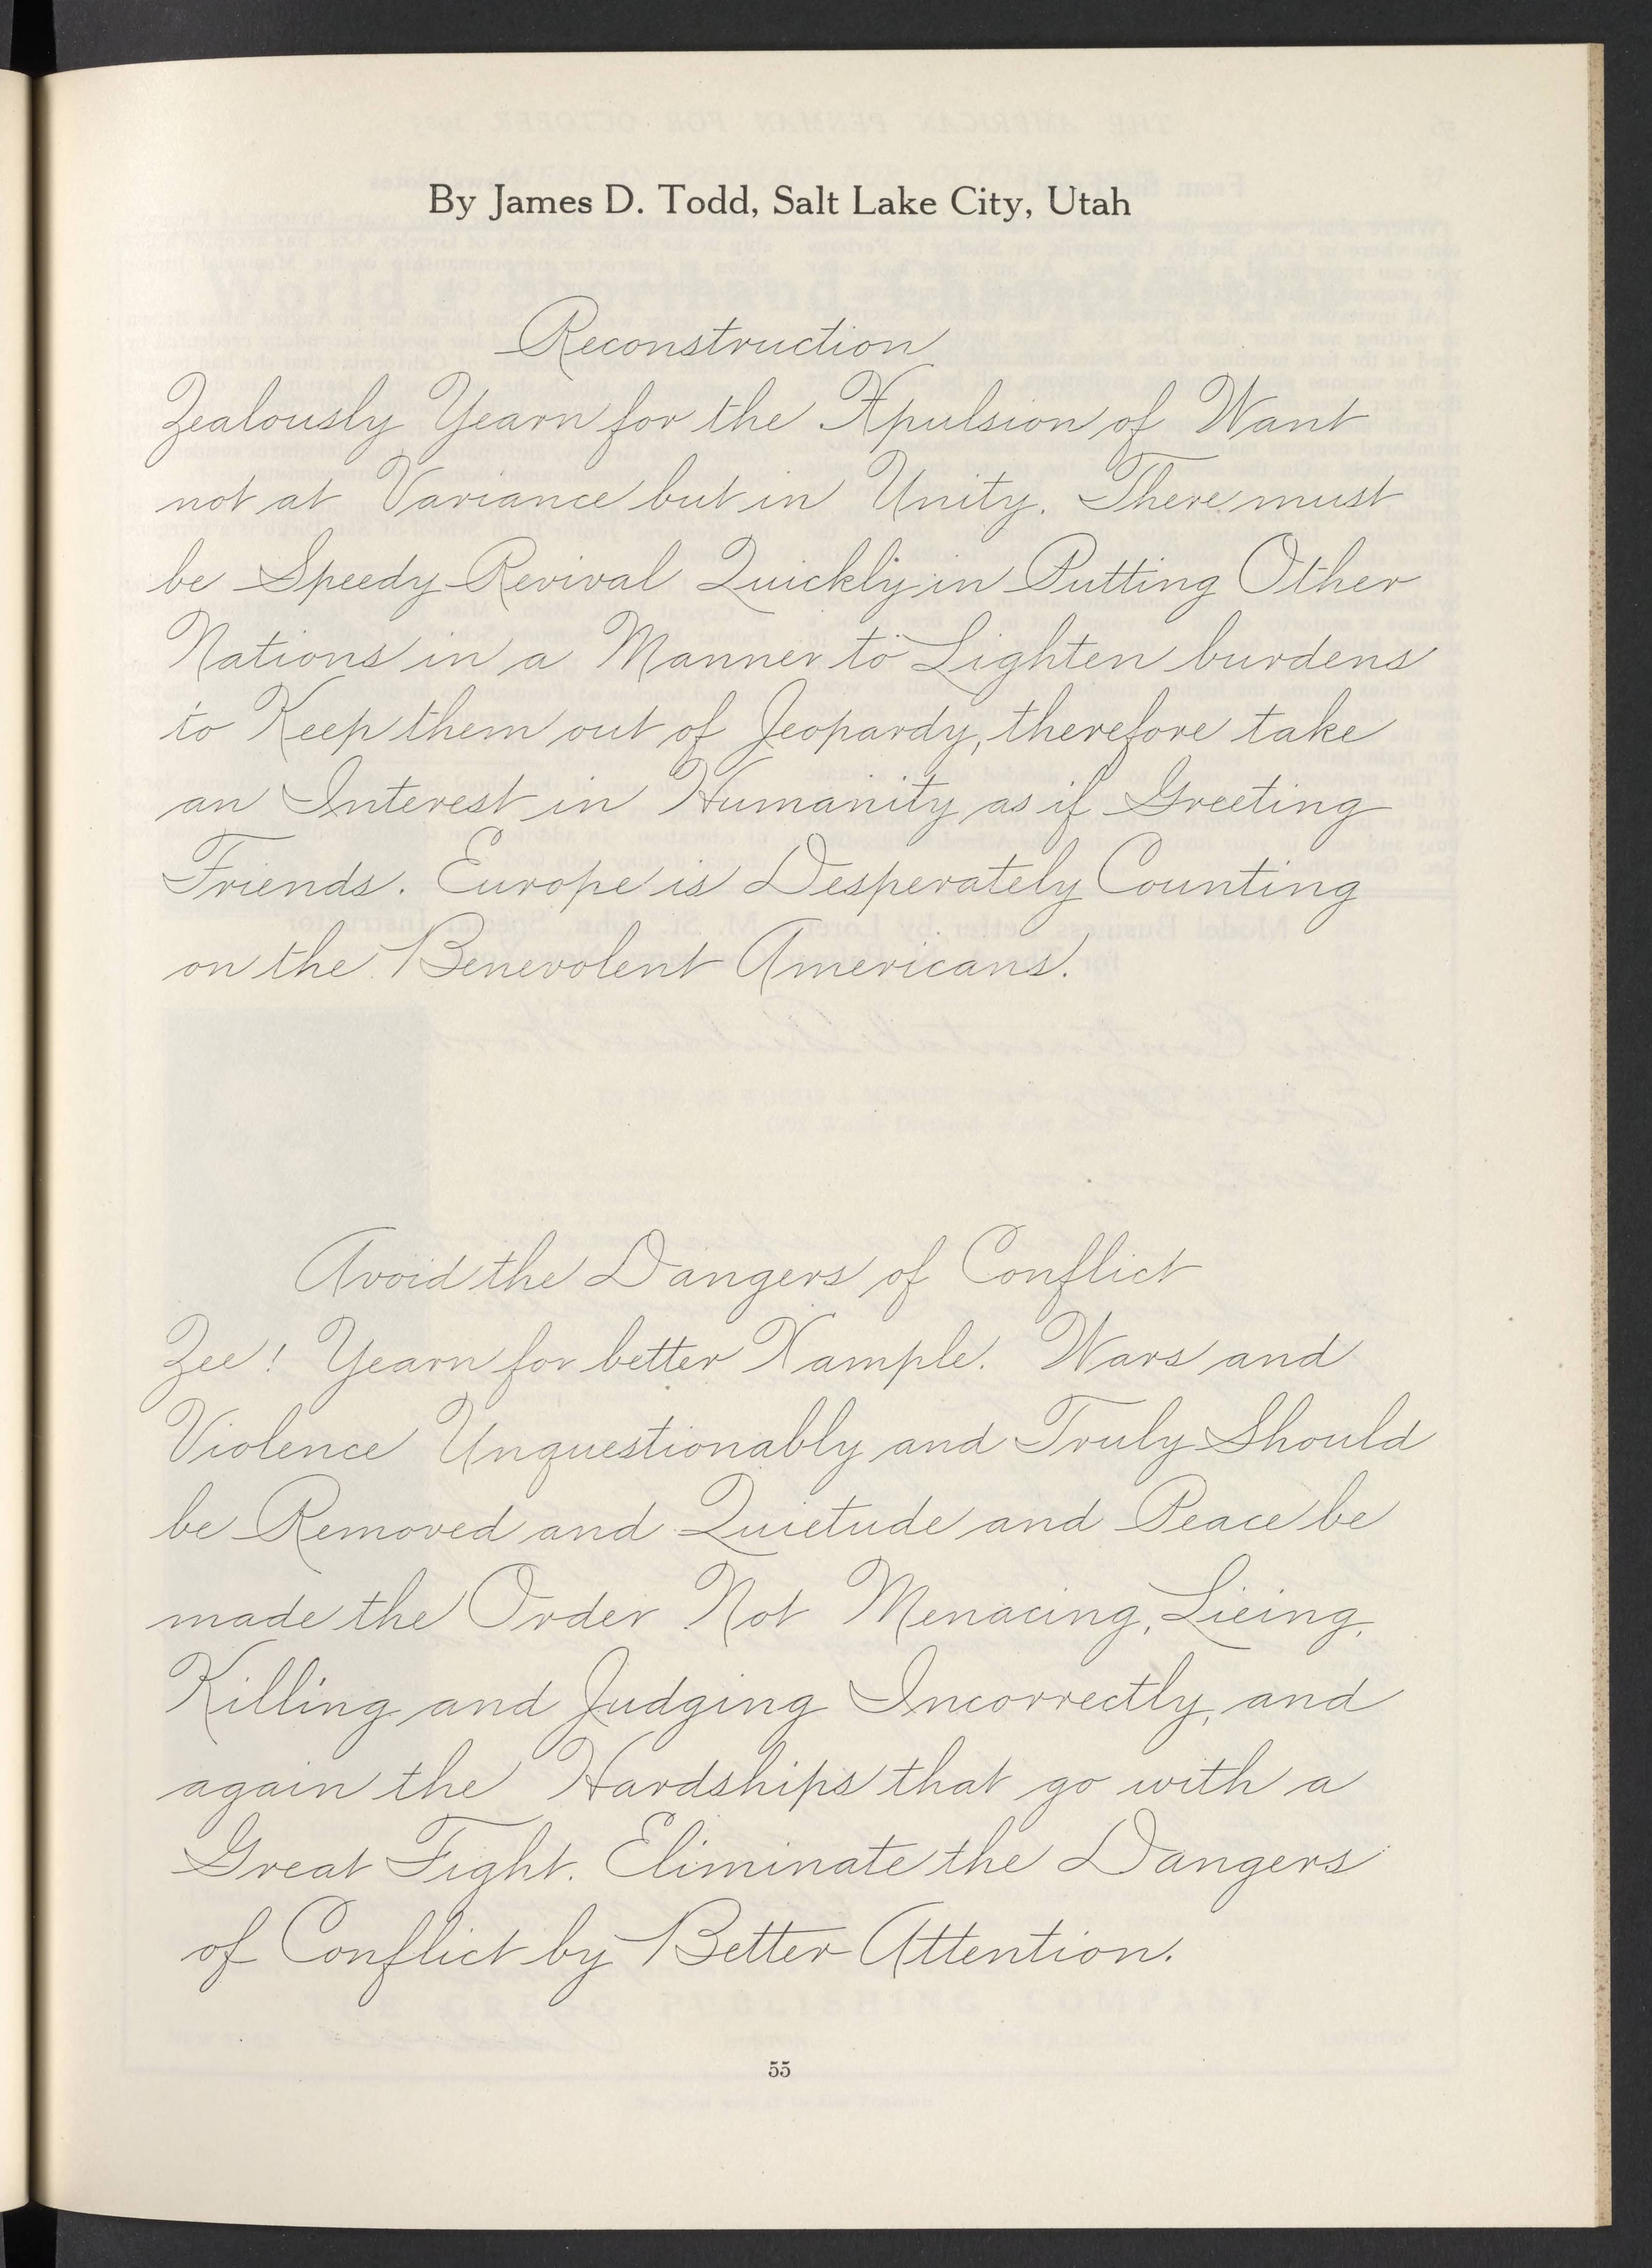 By James D. Todd, Salt Lake City, Utah
Reconstruction
Zealously Yearn for the Xpulsion of Want
not at Variance but in Unity. There must
be Speedy Revival Quickly in Putting Other
Nations in a Manner to Lighten burdens
to Keep them out of Jeopardy, therefore take
an Interest in Humanity as if Greeting
Friends. Europe is Desperately Counting
on the Benevolent Americans.
Avoid the Dangers of Conflict
Zee! Yearn for better Xample. Wars and
Violence Unquestionably and Truly Should
be Removed and Quietude and Peace be
made the Order Not Menacing, Lieing,
Killing and Judging Incorrectly, and
again the Hardships that go with a
Great Fight. Eliminate the Dangers
of Conflict by Better Attention.
55